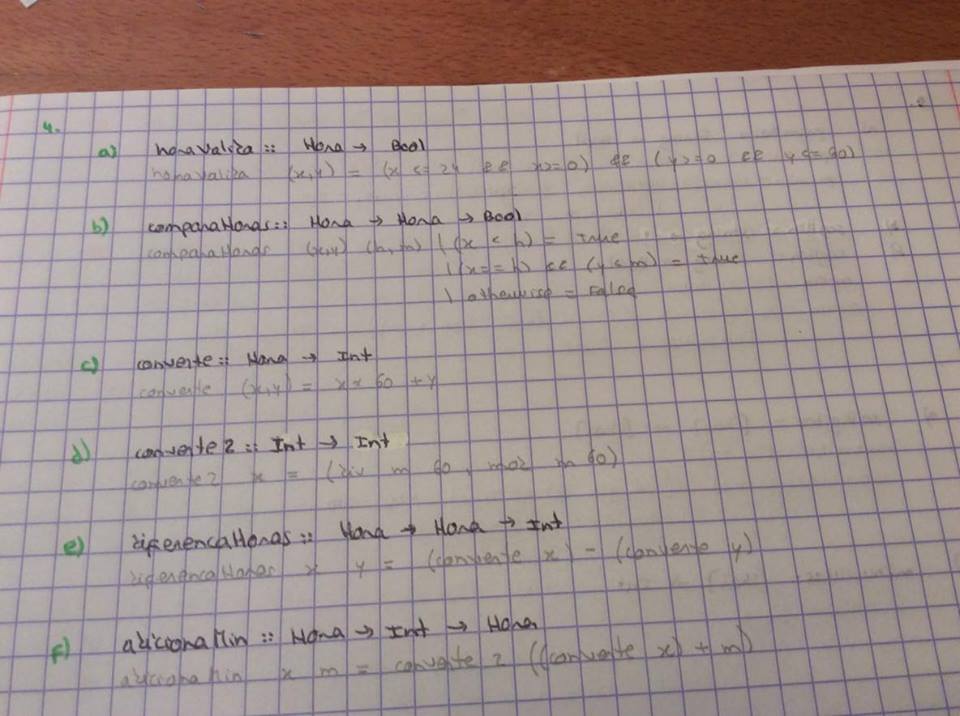 4.
a) horaValida :: Hora → Bool
horaValida (x,y) = (x <= 24 && x>=0) && (y>=0 && y<=60)
b) comparaHoras :: Hora → Hora → Bool
comparaHoras (x,y) (h,m) | (x < h) = True
| (x==h) && (y<m) = True
| otherwise = False
c) converte :: Hora → Int
converte (x,y) = x * 60 + y
d) converte2 :: Int → Int
converte2 x = (div m 60, mod m 60)
e) diferencaHoras :: Hora → Hora → Int
diferencaHoras x y = (converte x) - (converte y)
f) adicionaMin :: Hora → Int → Hora
adicionaMin x m = converte2 ((converte x) + m)